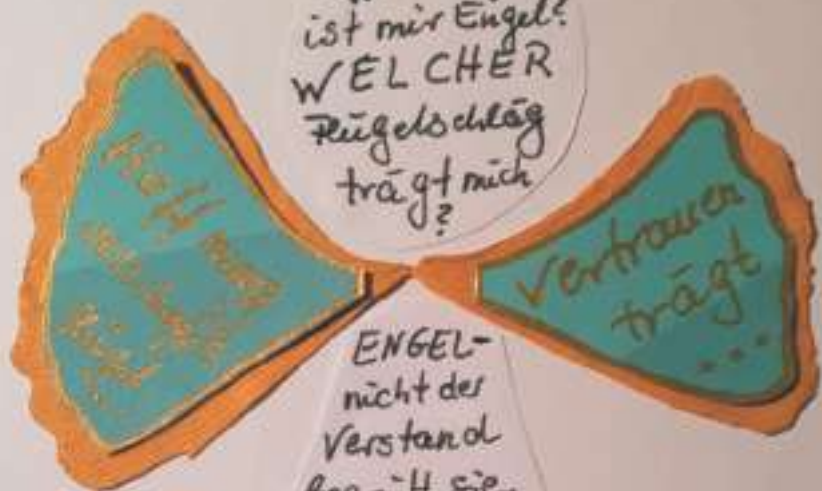 ist mir Engel?
WELCHER
Flügelschlag
trägt mich
?
Hoffnung
Vertrauen
trägt
...
ENGEL-
nicht der
Verstand